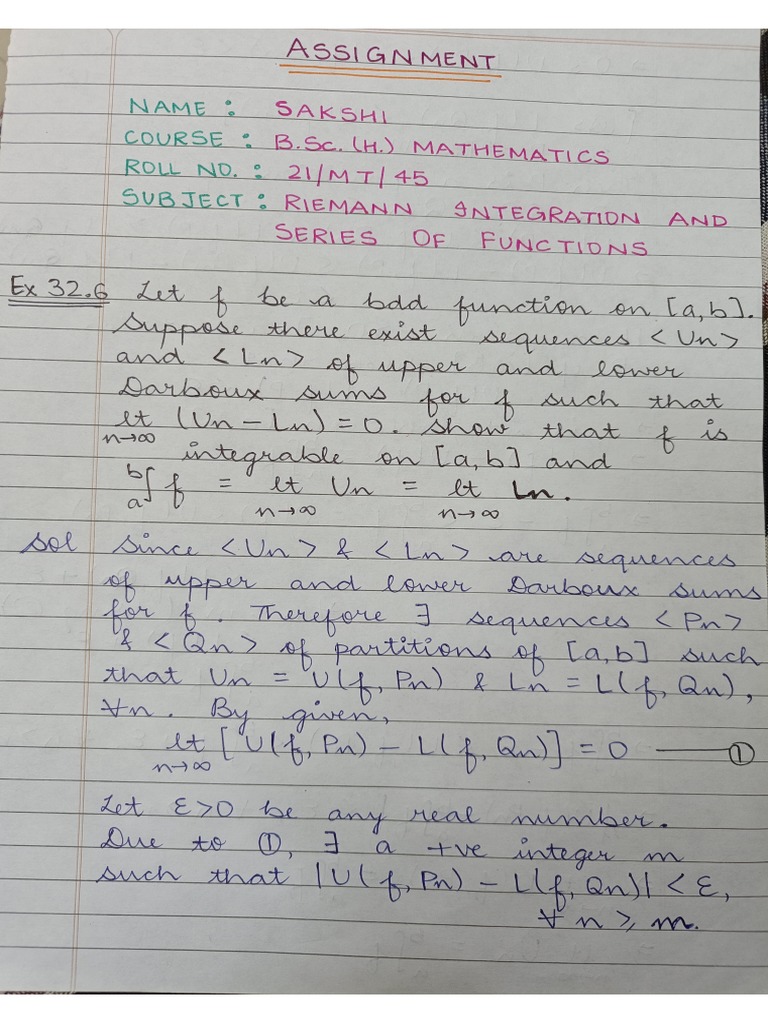 ASSIGNMENT
NAME : SAKSHI
COURSE : B.Sc.(H.) MATHEMATICS
ROLL NO. : 21/MT/45
SUBJECT : RIEMANN INTEGRATION AND
SERIES OF FUNCTIONS
Ex 32.6 Let f be a bdd function on [a,b].
Suppose there exist sequences <Un>
and <Ln> of upper and lower
Darboux sums for f such that
lt (Un - Ln) = 0. Show that f is
n→∞
integrable on [a,b] and
b
∫ f = lt Un = lt Ln.
a n→∞ n→∞
Sol Since <Un> & <Ln> are sequences
of upper and lower Darboux sums
for f. Therefore ∃ sequences <Pn>
& <Qn> of partitions of [a,b] such
that Un = U(f, Pn) & Ln = L(f, Qn),
∀n. By given,
lt [U(f, Pn) - L(f, Qn)] = 0 — ①
n→∞
Let ε>0 be any real number.
Due to ①, ∃ a +ve integer m
such that |U(f, Pn) - L(f, Qn)| < ε,
∀ n ≥ m.